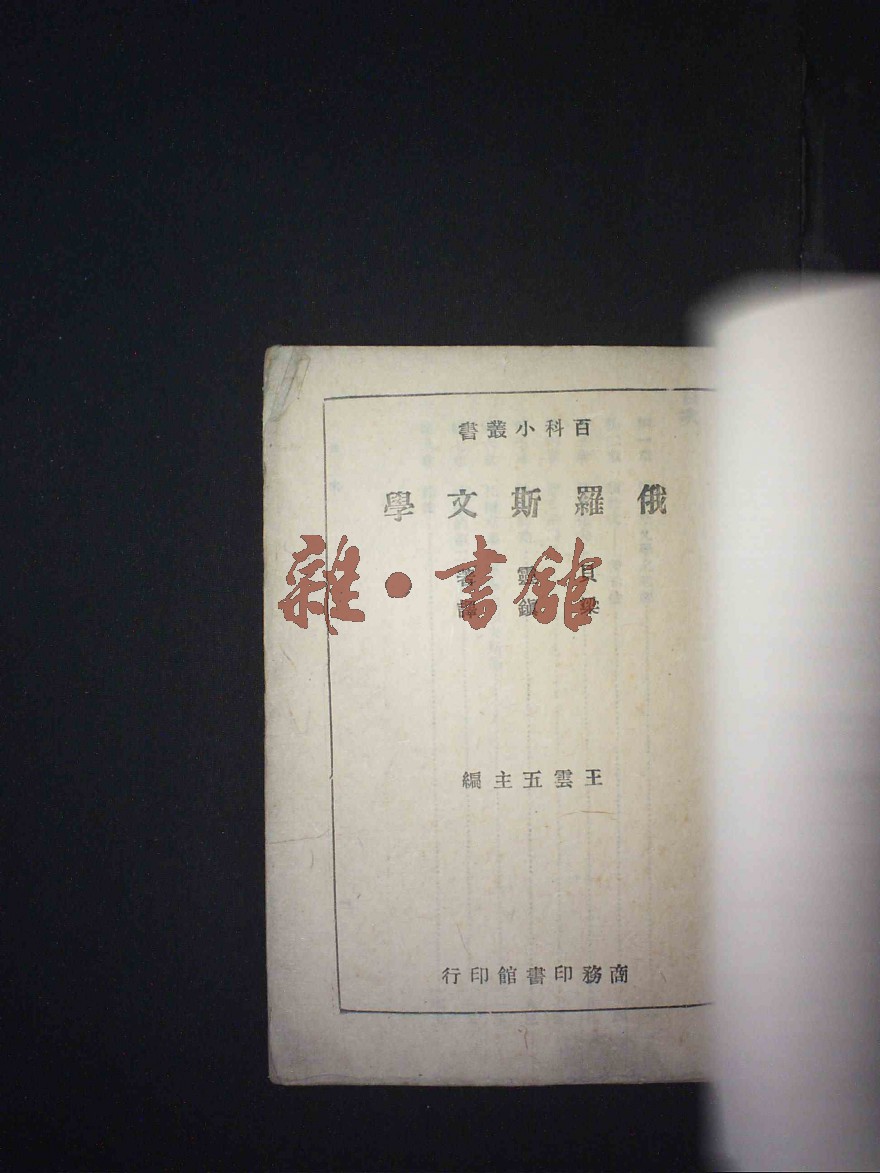 百科小叢書
俄羅斯文學
貝靈著
梁鎮譯
雜·書館
王雲五主編
商務印書館印行